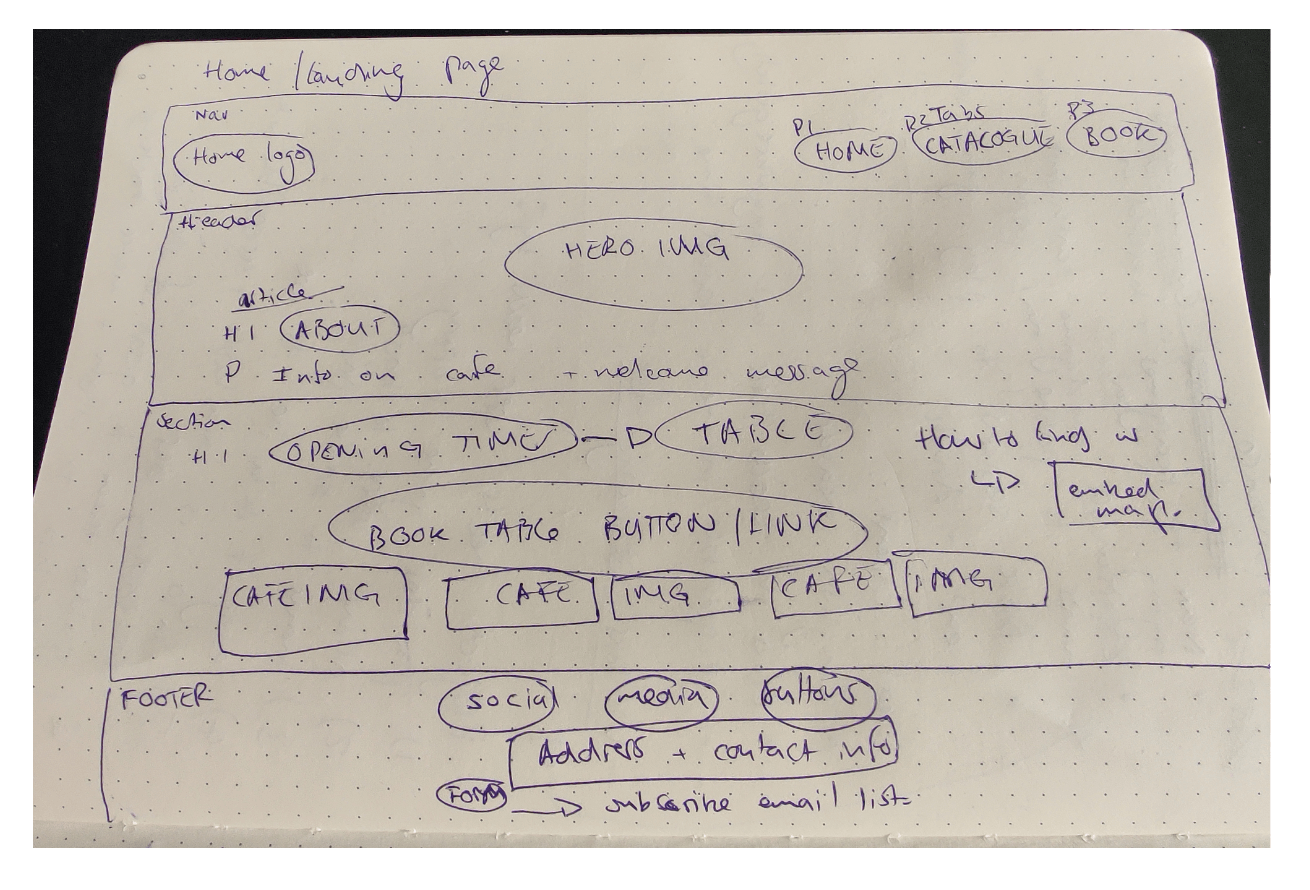 Home / Landing page
Nav
Home logo
P1 P2 Tabs P3
HOME CATALOGUE BOOK
Header
HERO IMG
article
H1 ABOUT
P Info on cafe + welcome message
Section
H1 OPENING TIMES → TABLE
How to find us
embed map.
BOOK TABLE BUTTON / LINK
CAFE IMG CAFE IMG CAFE IMG
FOOTER
social media buttons
Address + contact info
FORM → subscribe email list